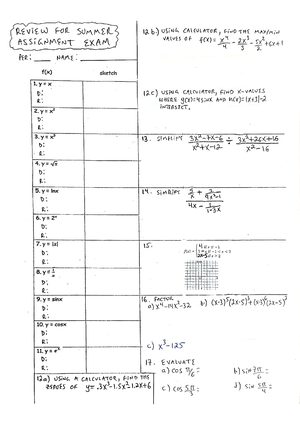 REVIEW FOR SUMMER
ASSIGNMENT EXAM
PER: NAME:
f(x) sketch
1. y = x
D:
R:
2. y = x²
D:
R:
3. y = x³
D:
R:
4. y = √x
D:
R:
5. y = lnx
D:
R:
6. y = 2ˣ
D:
R:
7. y = |x|
D:
R:
8. y = 1/x
D:
R:
9. y = sinx
D:
R:
10. y = cosx
D:
R:
11. y = eˣ
D:
R:
12a) USING A CALCULATOR, FIND THE
ZEROES OF y = .3x³-1.5x²-1.2x+6
12b) USING CALCULATOR, FIND THE MAX/MIN
VALUES OF f(x) = x⁴/4 - 2x³/3 - 5x²/2 + 6x + 1
12c) USING CALCULATOR, FIND X-VALUES
WHERE g(x)=4sinx AND h(x)=|x|-2
INTERSECT.
13. SIMPLIFY
x²+x-12 x²-16
14. SIMPLIFY
15.
16. FACTOR
a) x⁴-14x²-32 b) (x-3)²(2x-5)³+(x-3)³(2x-5)²
c) x³-125
17. EVALUATE
a) cos π/6 = b) sin 7π/6 =
c) cos 5π/3 = d) sin 5π/4 =